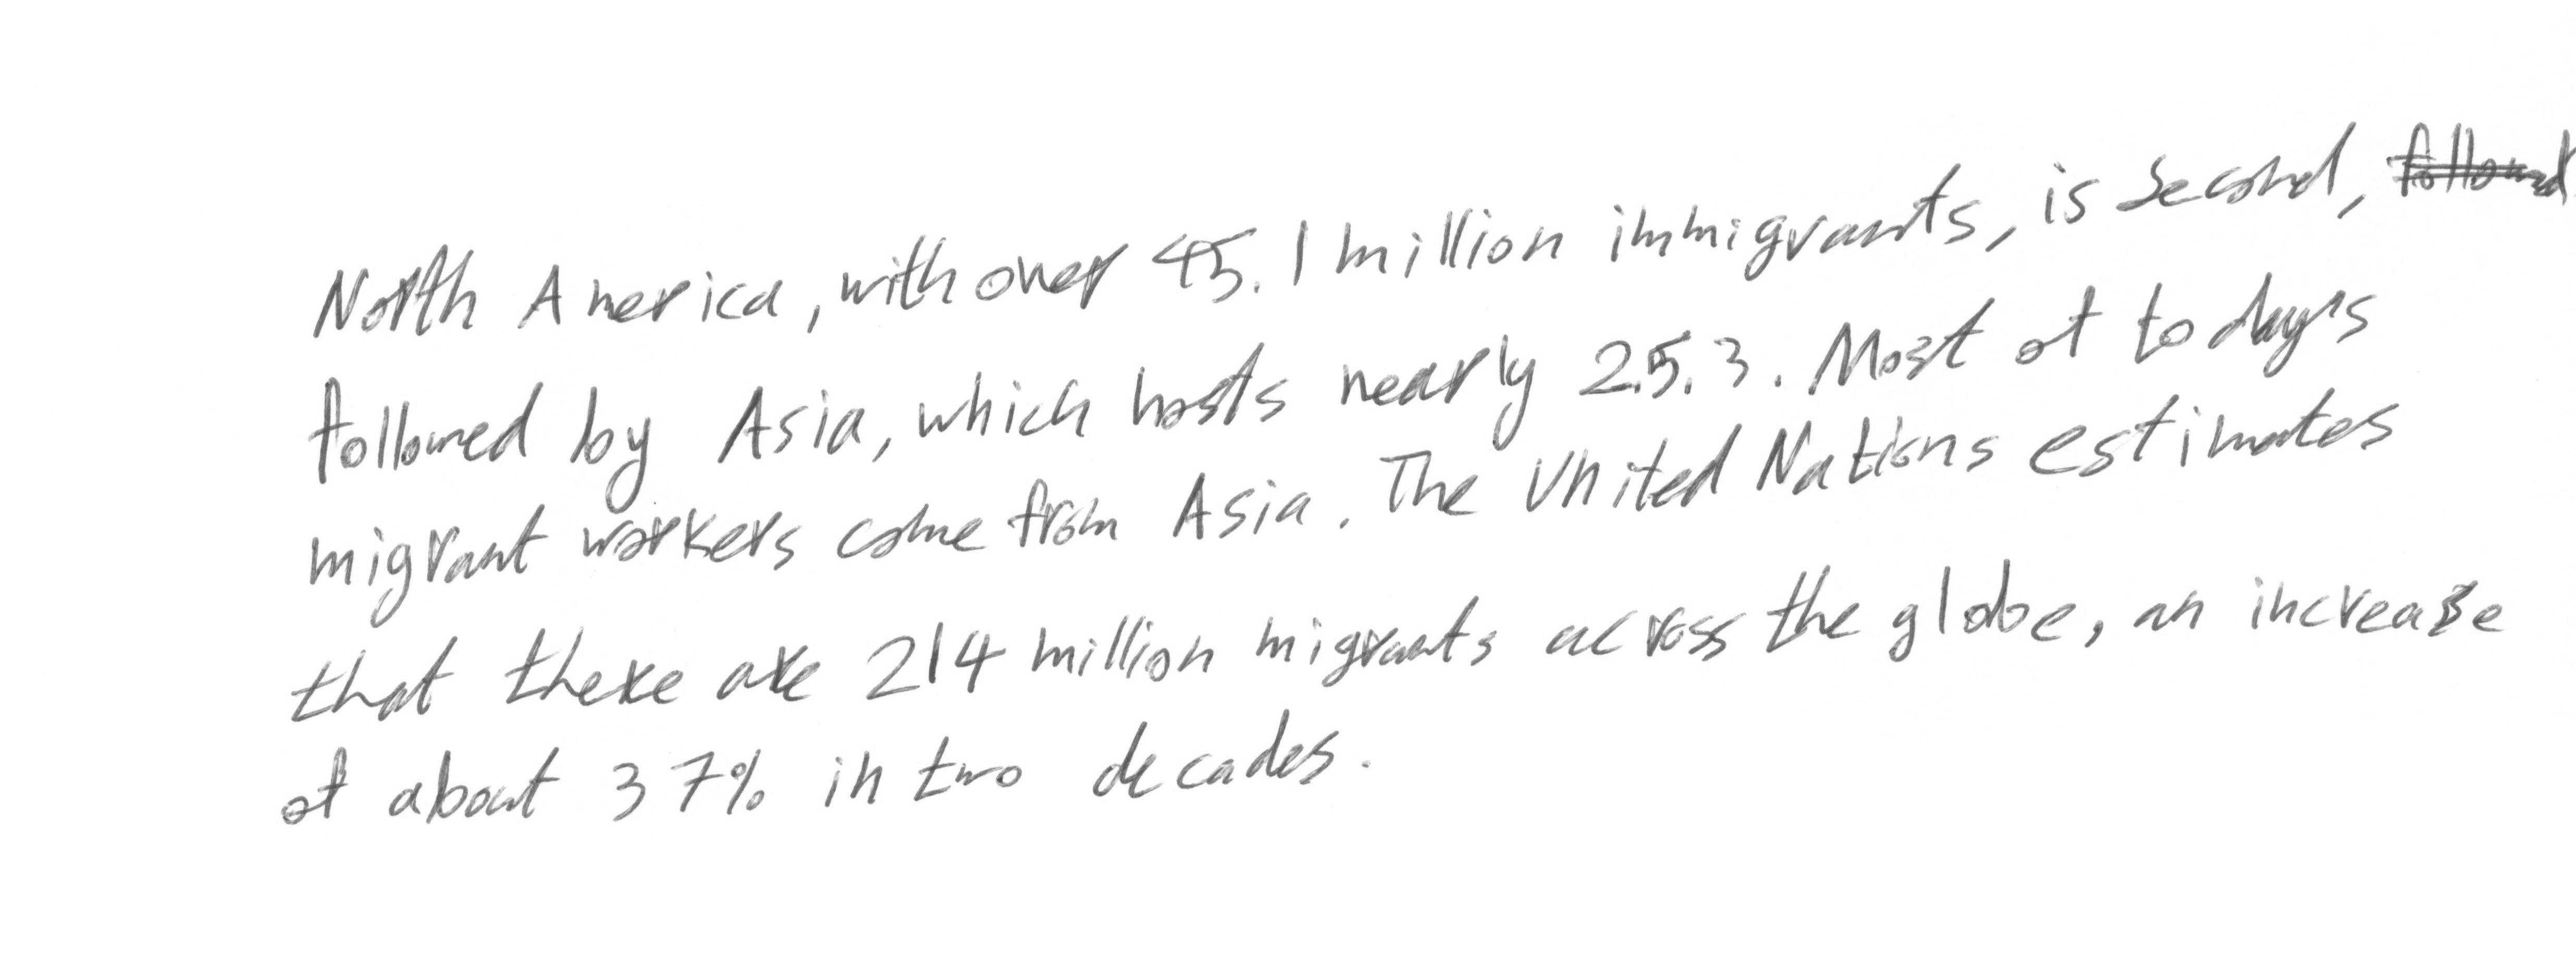 North America, with over 45.1 million immigrants, is second, followed
followed by Asia, which hosts nearly 25.3. Most of today's
migrant workers come from Asia. The United Nations estimates
that there are 214 million migrants across the globe, an increase
of about 37% in two decades.